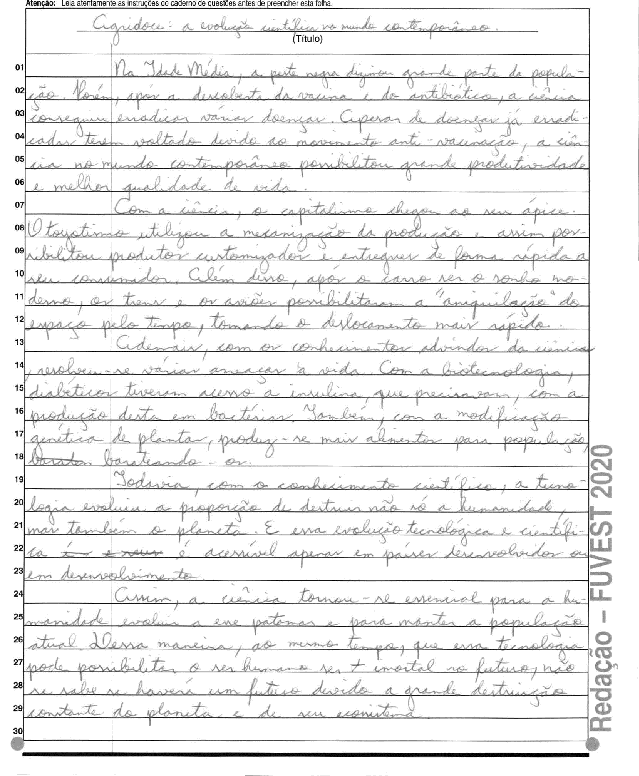 Atenção: Leia atentamente as instruções do caderno de questões antes de preencher esta folha.
Agridoce: a evolução científica no mundo contemporâneo.
(Título)
01 Na Idade Média, a peste negra dizimou grande parte da popula-
02 ção. Porém, após a descoberta da vacina e do antibiótico, a ciência
03 conseguiu erradicar várias doenças. Apesar de doenças já erradi-
04 cadas terem voltado devido ao movimento anti-vacinação, a ciên-
05 cia no mundo contemporâneo possibilitou grande produtividade
06 e melhor qualidade de vida.
07 Com a ciência, o capitalismo chegou ao seu ápice.
08 O toyotismo utilizou a mecanização da produção e assim pos-
09 sibilitou produtos customizados e entregues de forma rápida a
10 seu consumidor. Além disso, após o carro ser o sonho mo-
11 derno, os trens e os aviões possibilitaram a "aniquilação" do
12 espaço pelo tempo, tornando o deslocamento mais rápido.
13 Ademais, com os conhecimentos advindos da ciência
14 , resolveu-se várias ameaças à vida. Com a biotecnologia,
15 diabéticos tiveram acesso a insulina, que precisavam, com a
16 produção desta em bactérias. Também, com a modificação
17 genética de plantas, produz-se mais alimentos para população,
18 barateando-os.
19 Todavia, com o conhecimento científico, a tecno-
20 logia evoluiu a proporção de destruir não só a humanidade,
21 mas também o planeta. E essa evolução tecnológica e científi-
22 ca é acessível apenas em países desenvolvidos ou
23 em desenvolvimento.
24 Assim, a ciência tornou-se essencial para a hu-
25 manidade evoluir a esse patamar e para manter a população
26 atual. Dessa maneira, ao mesmo tempo, que essa tecnologia
27 pode possibilitar o ser humano ser + imortal no futuro, não
28 se sabe se haverá um futuro devido a grande destruição
29 constante do planeta e de seu ecossistema.
30
Redação – FUVEST 2020